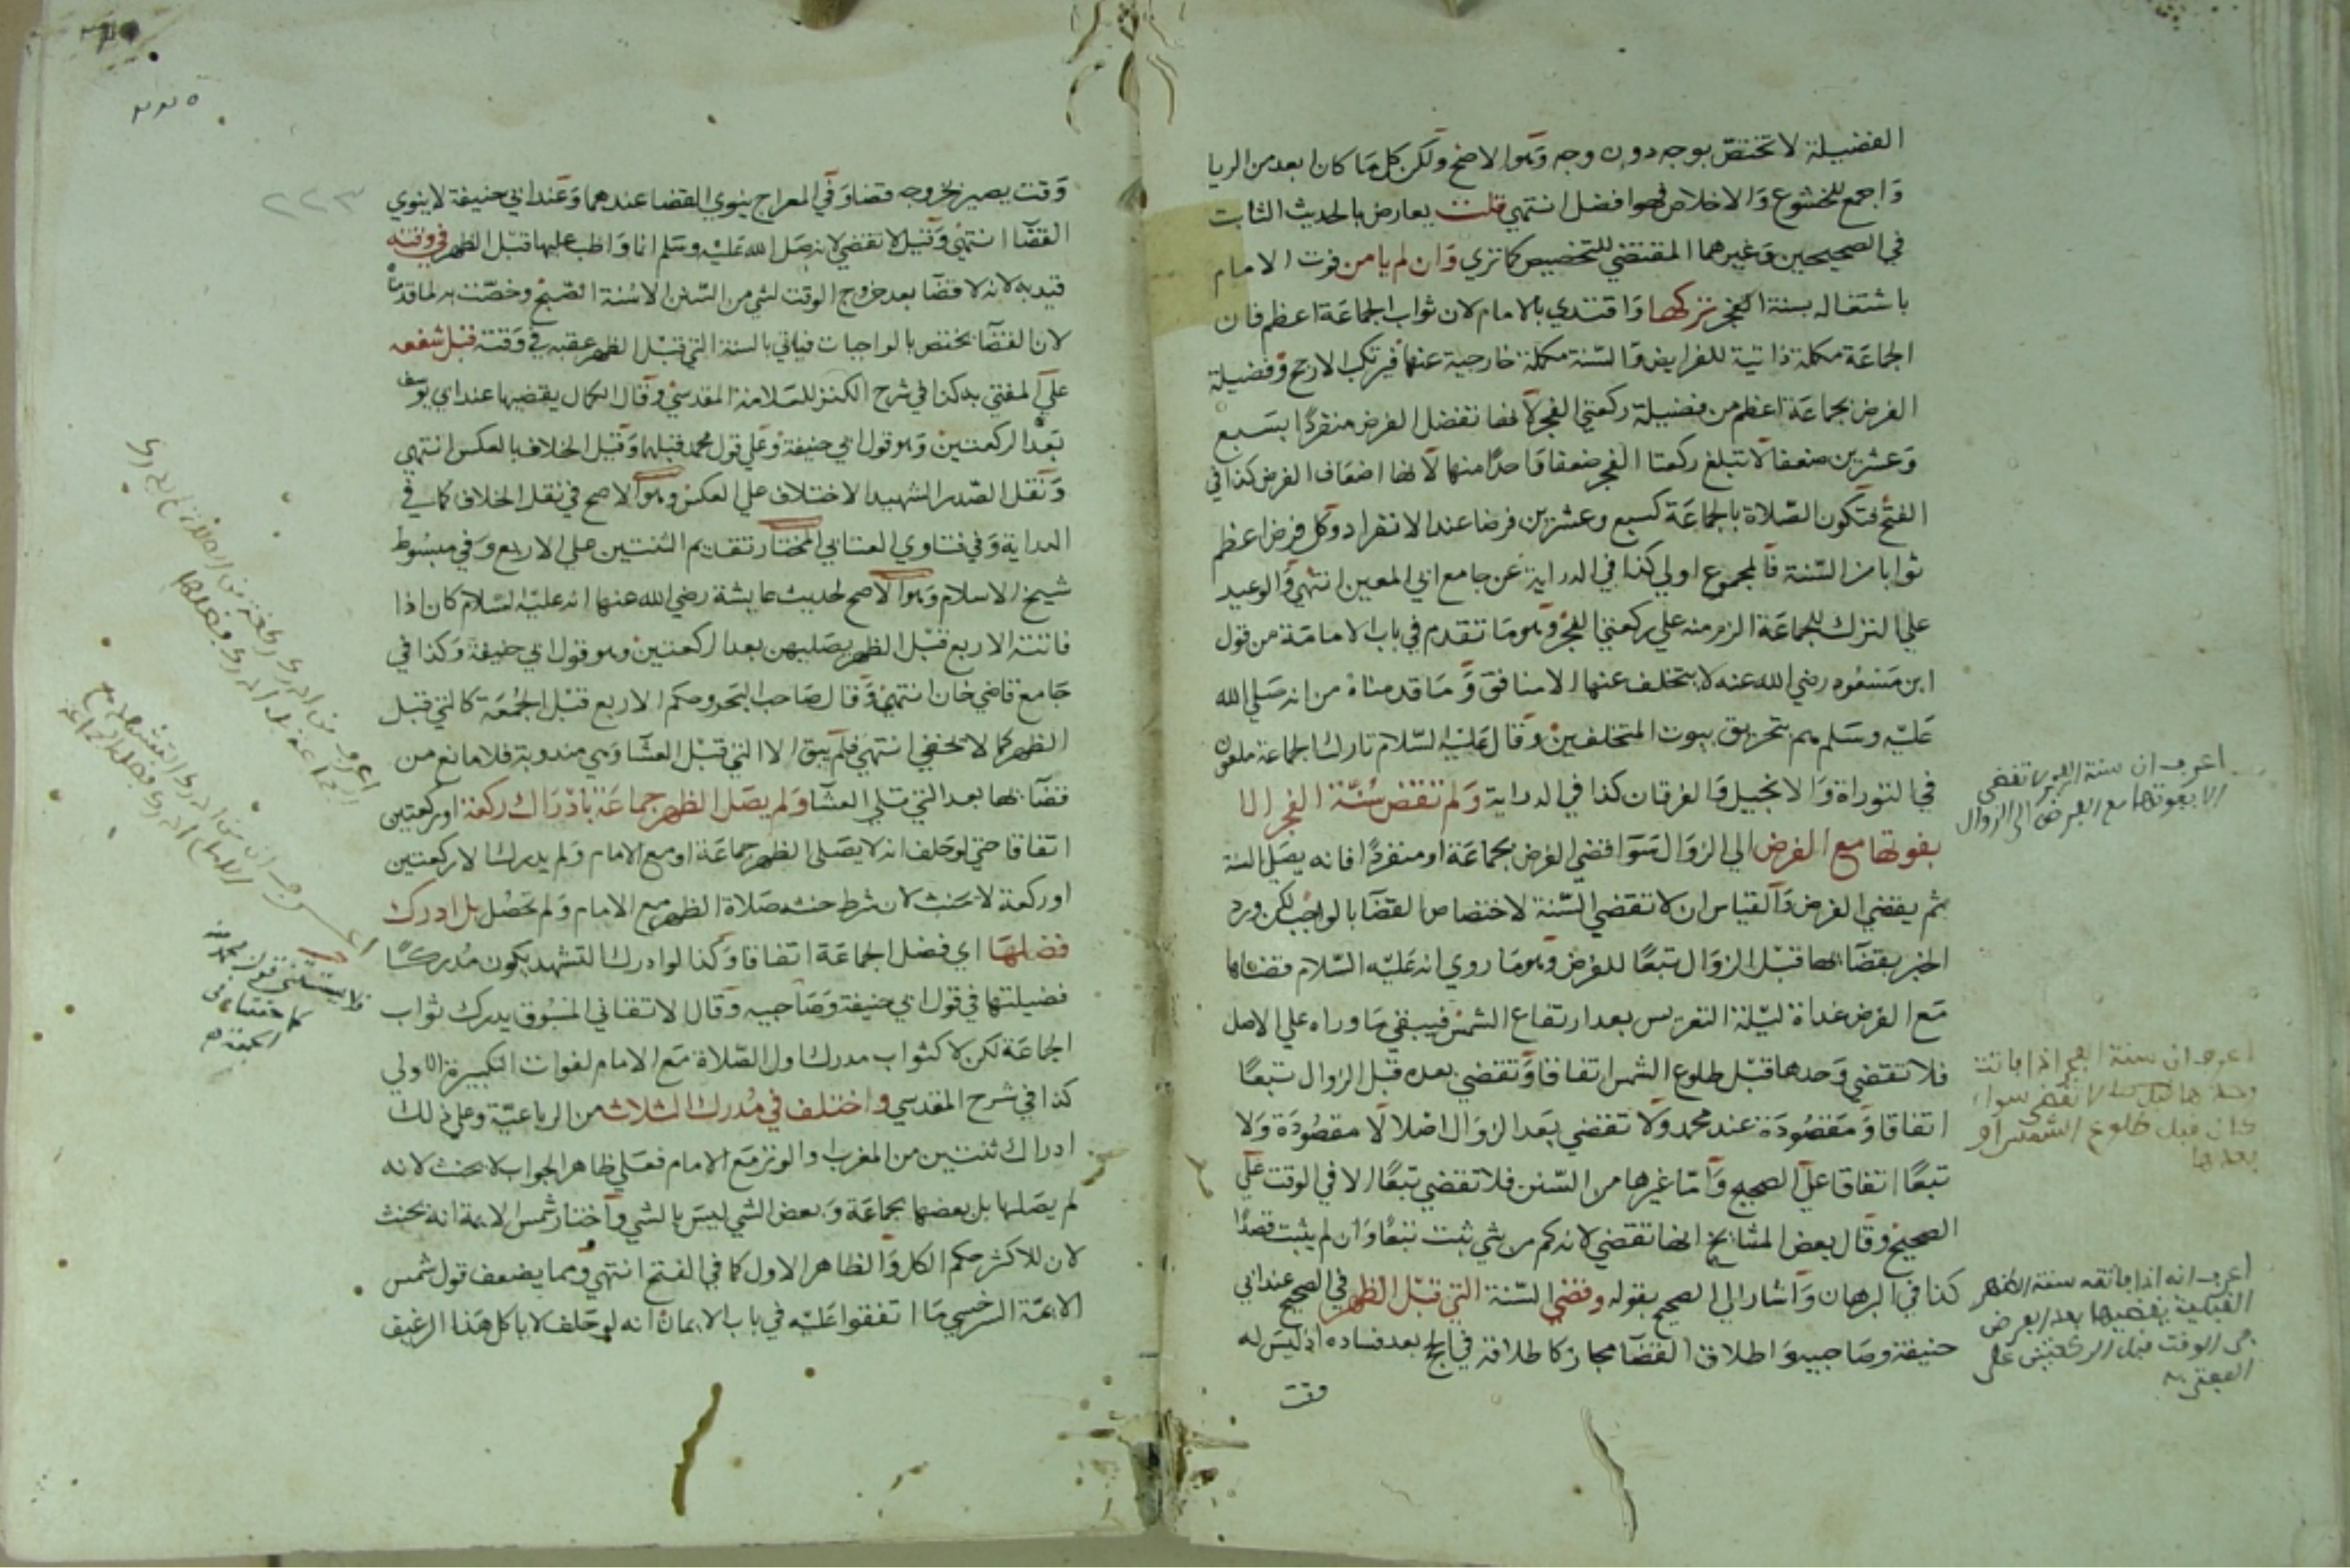 الفضيلة لا تختص بوجه دون وجه وهو الاصح ولكن كل ما كان ابعد من الريا
واجمع للخشوع والاخلاص فهو افضل انتهي قلت يعارض بالحديث الثابت
في الصحيحين وغيرهما المقتضي للتخصيص كما تري وان لم يامن فوت الامام
باشتغاله بسنة الفجر تركها واقتدي بالامام لان ثواب الجماعة اعظم فان
الجماعة مكملة ذاتية للفرايض والسنة مكملة خارجية عنها فيرتكب الارجح وفضيلة
الفرض بجماعة اعظم من فضيلة ركعتي الفجر لانها تفضل الفرض منفردا بسبع
وعشرين ضعفا لا تبلغ ركعتا الفجر ضعفا واحدا منها لانها اضعاف الفرض كذا في
الفتح فتكون الصلاة بالجماعة كسبع وعشرين فرضا عند الانفراد وكل فرض اعظم
ثوابا من السنة فالمجموع اولي كذا في الدراية عن جامع ابي المعين انتهي والوعيد
علي الترك للجماعة الزم منه علي ركعتي الفجر وهو ما تقدم في باب الامامة من قول
ابن مسعود رضي الله عنه لا يتخلف عنها الا منافق وما قدمناه من انه صلي الله
عليه وسلم هم بتحريق بيوت المتخلفين وقال عليه السلام تارك الجماعة ملعون
في التوراة والانجيل والفرقان كذا في الدراية ولم تقض سنة الفجر الا
بفوتها مع الفرض الي الزوال سوا قضي الفرض بجماعة او منفردا فانه يصلي السنة
ثم يقضي الفرض والقياس ان لا تقضي السنة لاختصاص القضا بالواجب لكن ورد
الخبر بقضائها قبل الزوال تبعا للفرض وهو ما روي انه عليه السلام قضاها
مع الفرض غداة ليلة التعريس بعد ارتفاع الشمس فيبقي ما وراه علي الاصل
فلا تقضي وحدها قبل طلوع الشمس اتفاقا وتقضي بعده قبل الزوال تبعا
اتفاقا ومقصودة عند محمد ولا تقضي بعد الزوال اصلا لا مقصودة ولا
تبعا اتفاقا علي الصحيح واما غيرها من السنن فلا تقضي تبعا الا في الوقت علي
الصحيح وقال بعض المشايخ انها تقضي لانه كم من شي ثبت تبعا وان لم يثبت قصدا
كذا في البرهان واشار الي الصحيح بقوله وقضي السنة التي قبل الظهر في الصحيح عند ابي
حنيفة وصاحبيه واطلاق القضا مجاز كاطلاقه في الحج بعد فساده اذ ليس له
وقت
اعرف ان سنة الفجر لا تقضي
الا بفوتها مع الفرض الي الزوال
اعرف ان سنة الفجر اذا فاتت
وحدها لا تقضي سواء
كان قبل طلوع الشمس او
بعدها
اعرف انه اذا فاتته سنة الظهر
القبلية يقضيها بعد الفرض
في الوقت قبل الركعتين علي
المفتى به
٢٢٥
٢٢٣
وقت يصير بخروجه قضا وفي المعراج ينوي القضا عندهما وعند ابي حنيفة لا ينوي
القضا انتهي وقيل لا تقضي لانه صلي الله عليه وسلم انما واظب عليها قبل الظهر في وقته
قيد به لانه لا قضا بعد خروج الوقت لشي من السنن الا سنة الصبح وخصت به لما قدمناه
لان القضا يختص بالواجبات فياتي بالسنة التي قبل الظهر عقبه في وقته قبل شفعه
علي المفتي به كذا في شرح الكنز للعلامة المقدسي وقال الكمال يقضيها عند ابي يوسف
بعد الركعتين وهو قول ابي حنيفة وعلي قول محمد قبلها وقيل الخلاف بالعكس انتهي
ونقل الصدر الشهيد الاختلاف علي العكس وهو الاصح في نقل الخلاف كما في
العداية وفي فتاوي العتابي المختار تقديم الثنتين علي الاربع وفي مبسوط
شيخ الاسلام وهو الاصح لحديث عايشة رضي الله عنها انه عليه السلام كان اذا
فاتته الاربع قبل الظهر يصليهن بعد الركعتين وهو قول ابي حنيفة وكذا في
جامع قاضي خان انتهي وقال صاحب البحر وحكم الاربع قبل الجمعة كالتي قبل
الظهر كما لا يخفي انتهي فلم يبق الا التي قبل العشا وهي مندوبة فلا مانع من
قضائها بعد التي تلي العشا ولم يصل الظهر جماعة بادراك ركعة او ركعتين
اتفاقا حتي لو حلف انه لا يصلي الظهر جماعة او مع الامام ولم يدرك الا ركعتين
او ركعة لا يحنث لان شرط حنثه صلاة الظهر مع الامام ولم تحصل بل ادرك
فضلها اي فضل الجماعة اتفاقا وكذا لو ادرك التشهد يكون مدركا
فضيلتها في قول ابي حنيفة وصاحبيه وقال الاتقاني المسبوق يدرك ثواب
الجماعة لكن لا كثواب مدرك اول الصلاة مع الامام لفوات التكبيرة الاولي
كذا في شرح المقدسي واختلف في مدرك الثلاث من الرباعية وعلي ذلك
ادراك ثنتين من المغرب والوتر مع الامام فعلي ظاهر الجواب لا يحنث لانه
لم يصلها بل بعضها بجماعة وبعض الشي ليس بالشي واختار شمس الايمة انه يحنث
لان للاكثر حكم الكل والظاهر الاول كما في الفتح انتهي ومما يضعف قول شمس
الايمة السرخسي ما اتفقوا عليه في باب الايمان انه لو حلف لا ياكل هذا الرغيف